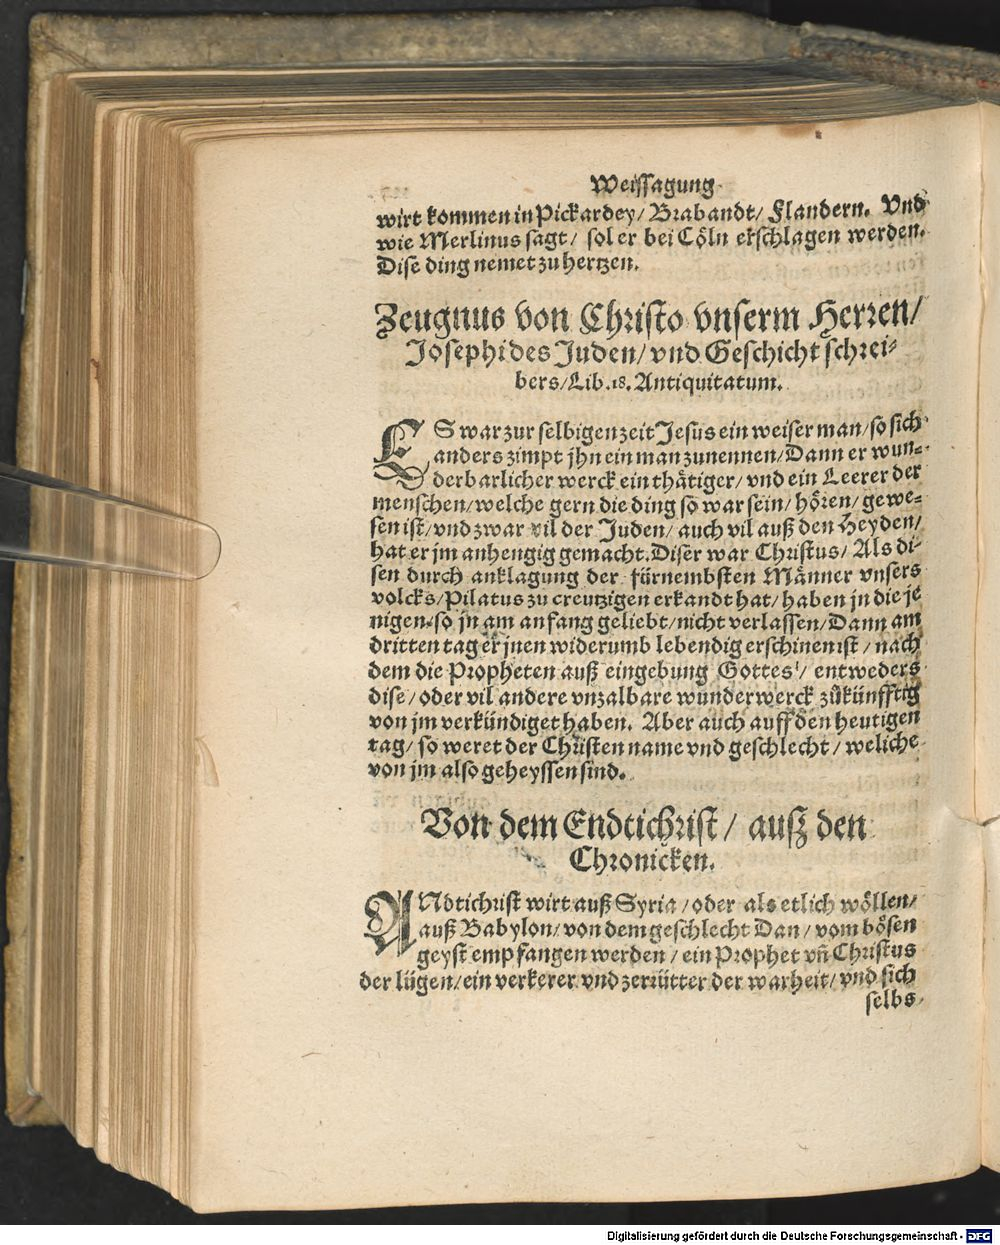 Weissagung
wirt kommen in Pickardey/ Brabandt/ Flandern. Vnd
wie Merlinus sagt/ sol er bei Cöln erschlagen werden.
Dise ding nemet zu hertzen.
Zeugnus von Christo vnserm Herren/
Josephi des Juden/ vnd Geschicht schrei-
bers/ Lib. 18. Antiquitatum.
ES war zur selbigen zeit Jesus ein weiser man/ so sich
anders zimpt jhn ein man zunennen/ Dann er wun-
derbarlicher werck ein thätiger/ vnd ein Leerer der
menschen/ welche gern die ding so war sein/ hören/ gewe-
sen ist/ vnd zwar vil der Juden/ auch vil auß den Heyden/
hat er jm anhengig gemacht. Diser war Christus/ Als di-
sen durch anklagung der fürnembsten Männer vnsers
volcks/ Pilatus zu creutzigen erkandt hat/ haben jn die je
nigen so jn am anfang geliebt/ nicht verlassen/ Dann am
dritten tag er jnen widerumb lebendig erschinen ist/ nach
dem die Propheten auß eingebung Gottes/ entweders
dise/ oder vil andere vnzalbare wunderwerck zůkünfftig
von jm verkündiget haben. Aber auch auff den heutigen
tag/ so weret der Christen name vnd geschlecht/ weliche
von jm also geheyssen sind.
Von dem Endtichrist/ auß den
Chronicken.
ANdtichrist wirt auß Syria/ oder als etlich wöllen/
auß Babylon/ von dem geschlecht Dan/ vom bösen
geyst empfangen werden/ ein Prophet vñ Christus
der lügen/ ein verkerer vnd zerrütter der warheit/ vnd sich
selbs
Digitalisierung gefördert durch die Deutsche Forschungsgemeinschaft - DFG